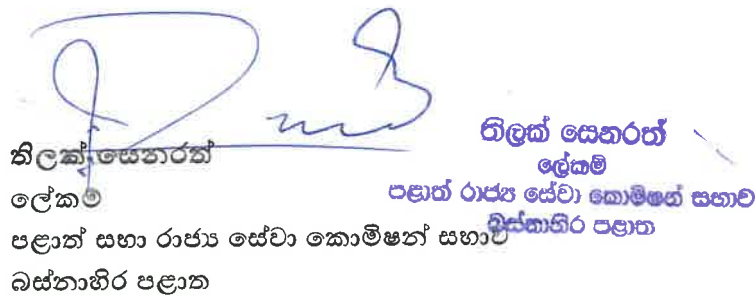 තිලක් සෙනරත්
ලේකම්
පළාත් සභා රාජ්‍ය සේවා කොමිෂන් සභාව
බස්නාහිර පළාත
තිලක් සෙනරත්
ලේකම්
පළාත් රාජ්‍ය සේවා කොමිෂන් සභාව
බස්නාහිර පළාත